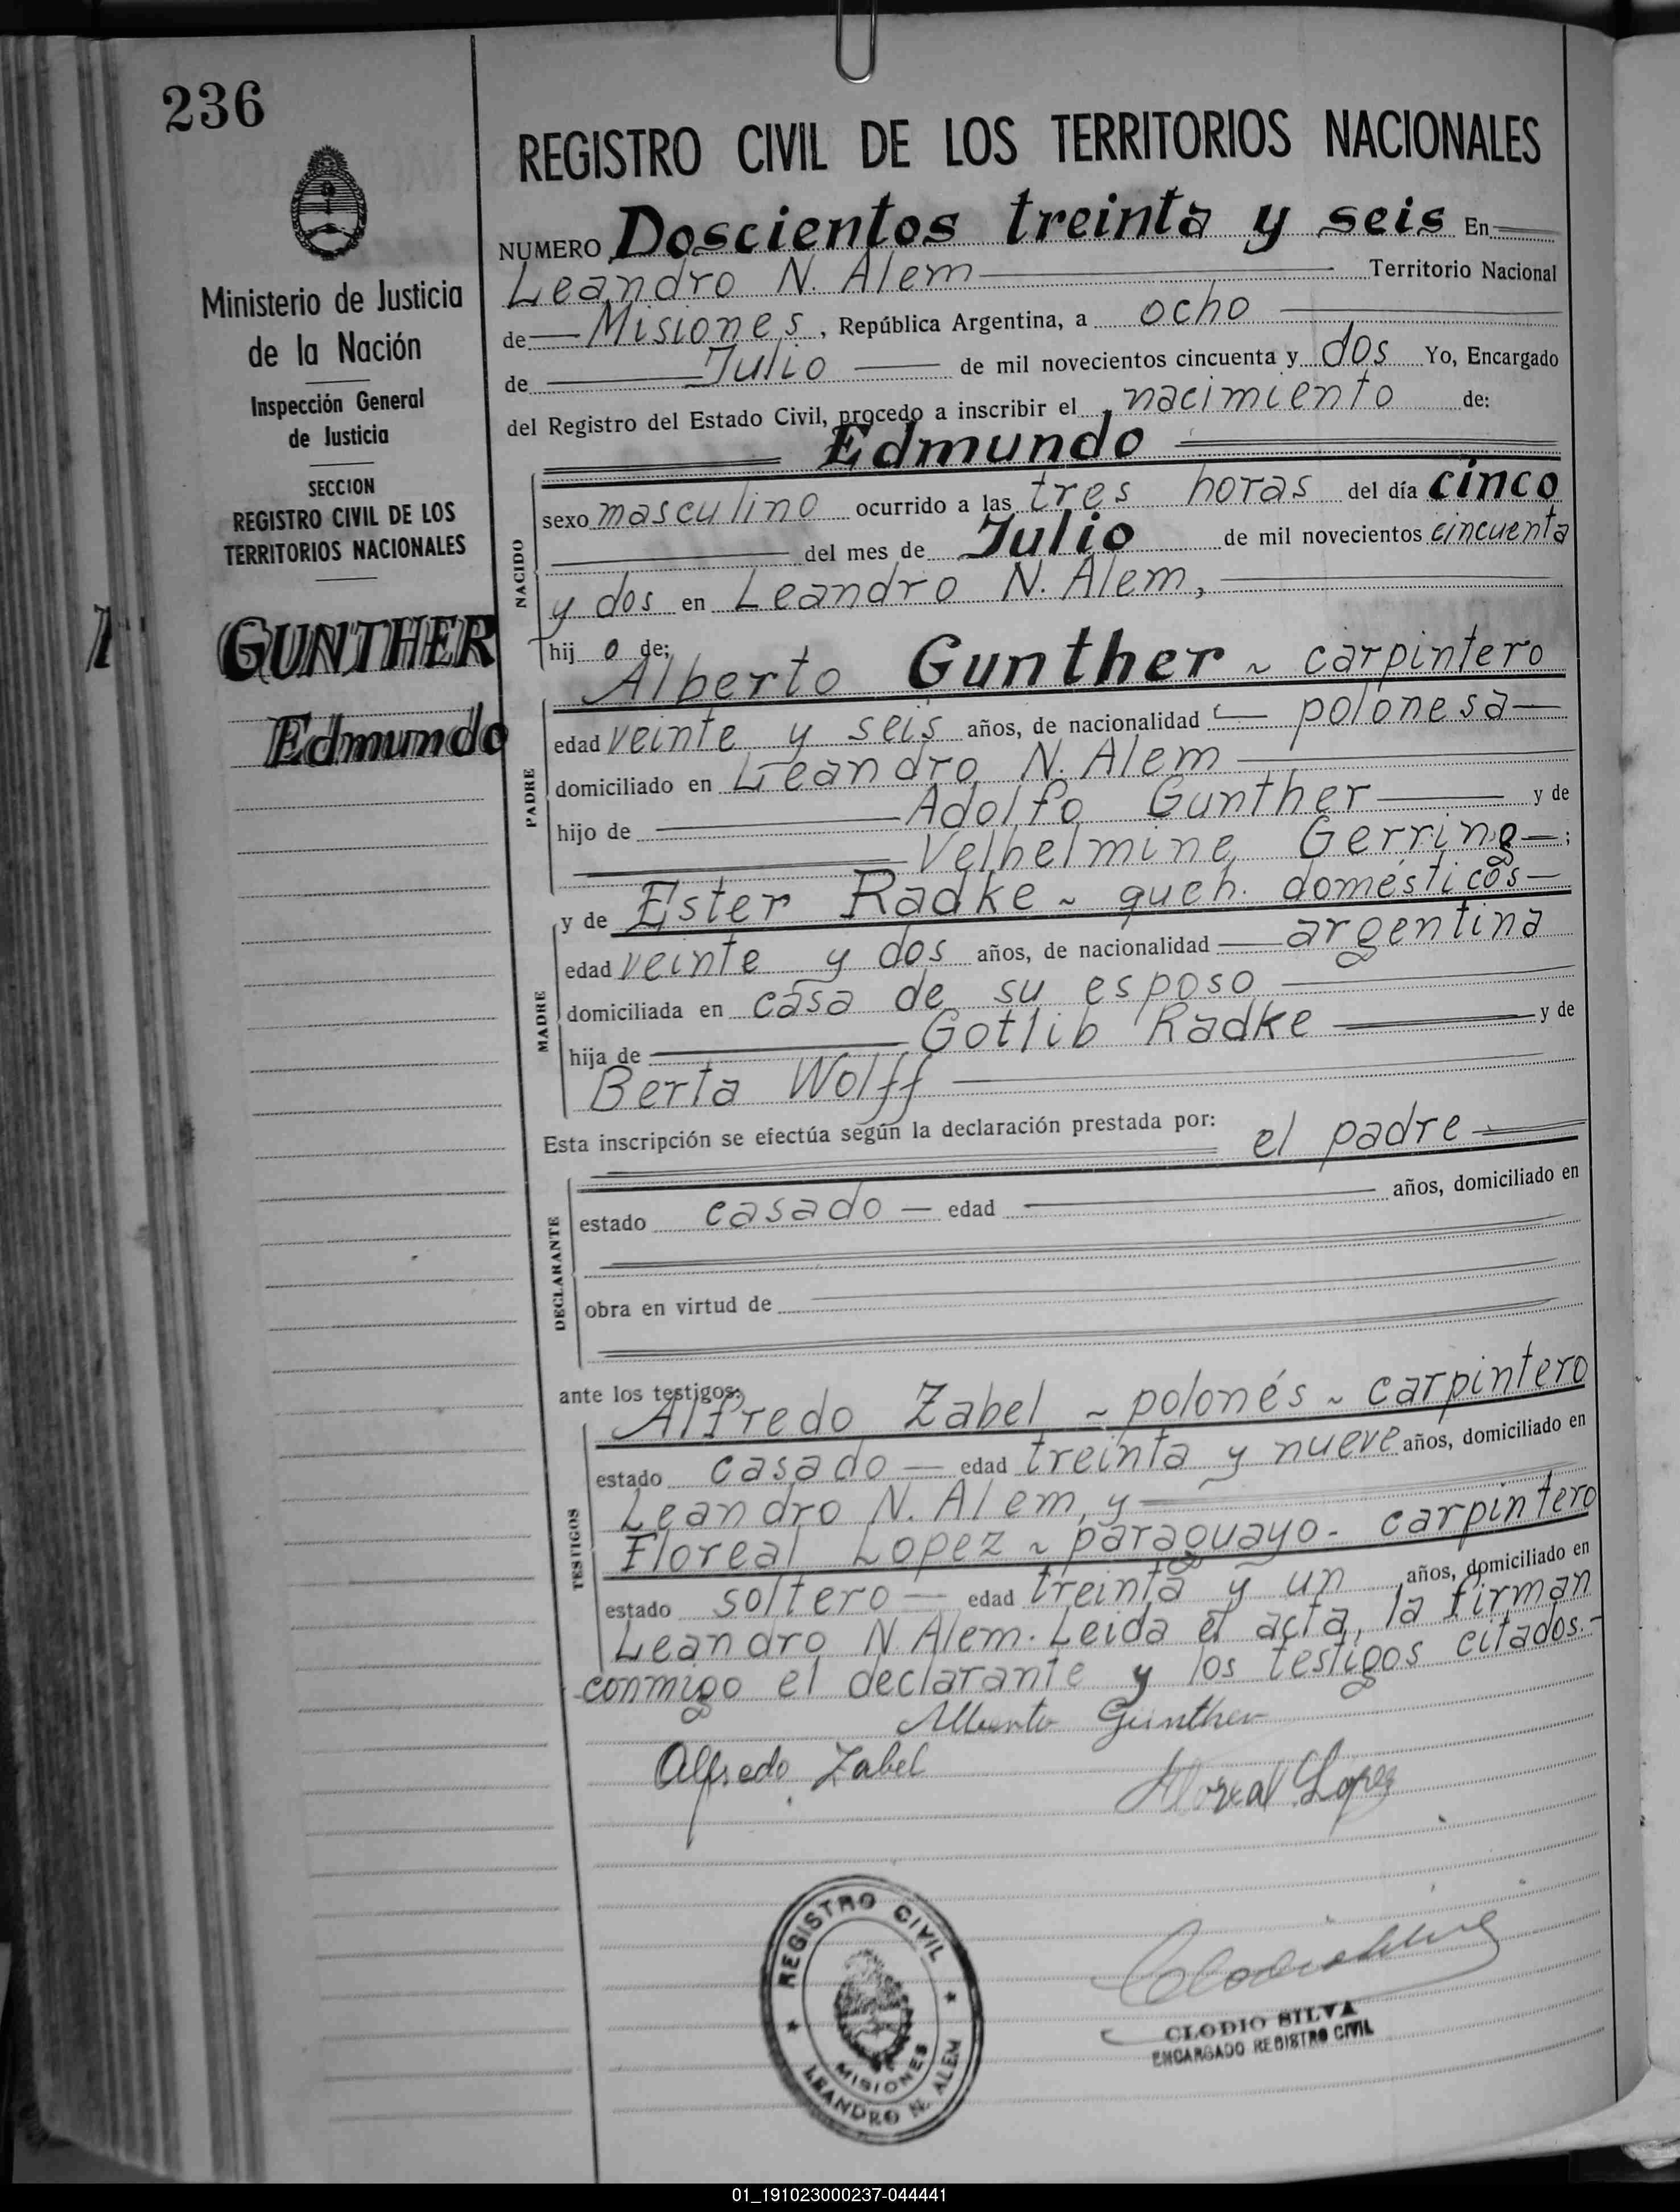 236
Ministerio de Justicia
de la Nación
Inspección General
de Justicia
SECCION
REGISTRO CIVIL DE LOS
TERRITORIOS NACIONALES
GUNTHER
Edmundo
REGISTRO CIVIL DE LOS TERRITORIOS NACIONALES
NUMERO Doscientos treinta y seis En
Leandro N. Alem Territorio Nacional
de Misiones, República Argentina, a ocho
de Julio de mil novecientos cincuenta y dos Yo, Encargado
del Registro del Estado Civil, procedo a inscribir el nacimiento de:
Edmundo
NACIDO
sexo masculino ocurrido a las tres horas del día cinco
del mes de Julio de mil novecientos cincuenta
y dos en Leandro N. Alem,
hij o de:
Alberto Gunther ~ carpintero
PADRE
edad veinte y seis años, de nacionalidad polonesa
domiciliado en Leandro N. Alem
hijo de Adolfo Gunther y de
Velhelmine Gerring ;
y de Ester Radke ~ queh. domésticos
MADRE
edad veinte y dos años, de nacionalidad argentina
domiciliada en casa de su esposo
hija de Gotlib Radke y de
Berta Wolff
Esta inscripción se efectúa según la declaración prestada por: el padre
DECLARANTE
estado casado edad años, domiciliado en
obra en virtud de
ante los testigos:
Alfredo Zabel ~ polonés ~ carpintero
TESTIGOS
estado casado edad treinta y nueve años, domiciliado en
Leandro N. Alem, y
Floreal Lopez ~ paraguayo - carpintero
estado soltero edad treinta y un años, domiciliado en
Leandro N. Alem. Leida el acta, la firman
conmigo el declarante y los testigos citados.-
Alberto Gunther
Alfredo Zabel Floreal Lopez
REGISTRO CIVIL
MISIONES
LEANDRO N. ALEM
CLODIO SILVA
ENCARGADO REGISTRO CIVIL
01_191023000237-044441